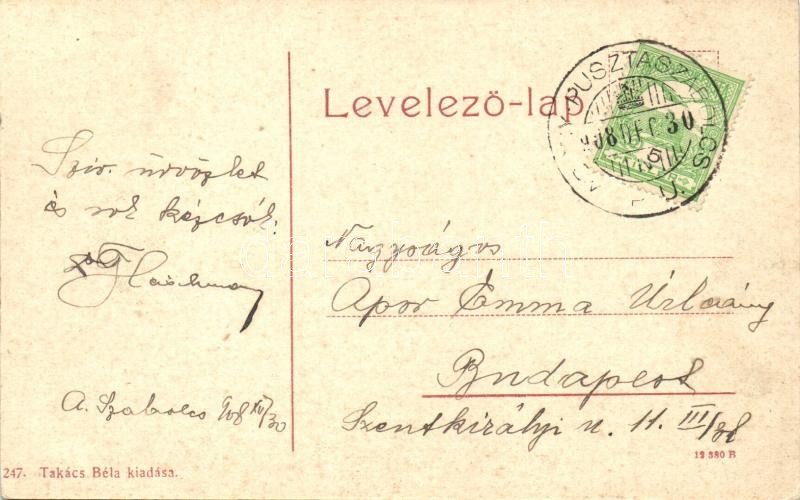 Levelező-lap
PUSZTASZABOLCS
908 DEC 30
5
Sziv. üdvözlet
és sok kézcsók:
A. Szabolcs 908 XII/30
Nagyságos
Apor Emma Úrleány
Budapest
Szentkirályi u. 11. III/
247. Takács Béla kiadása.
12 380 B